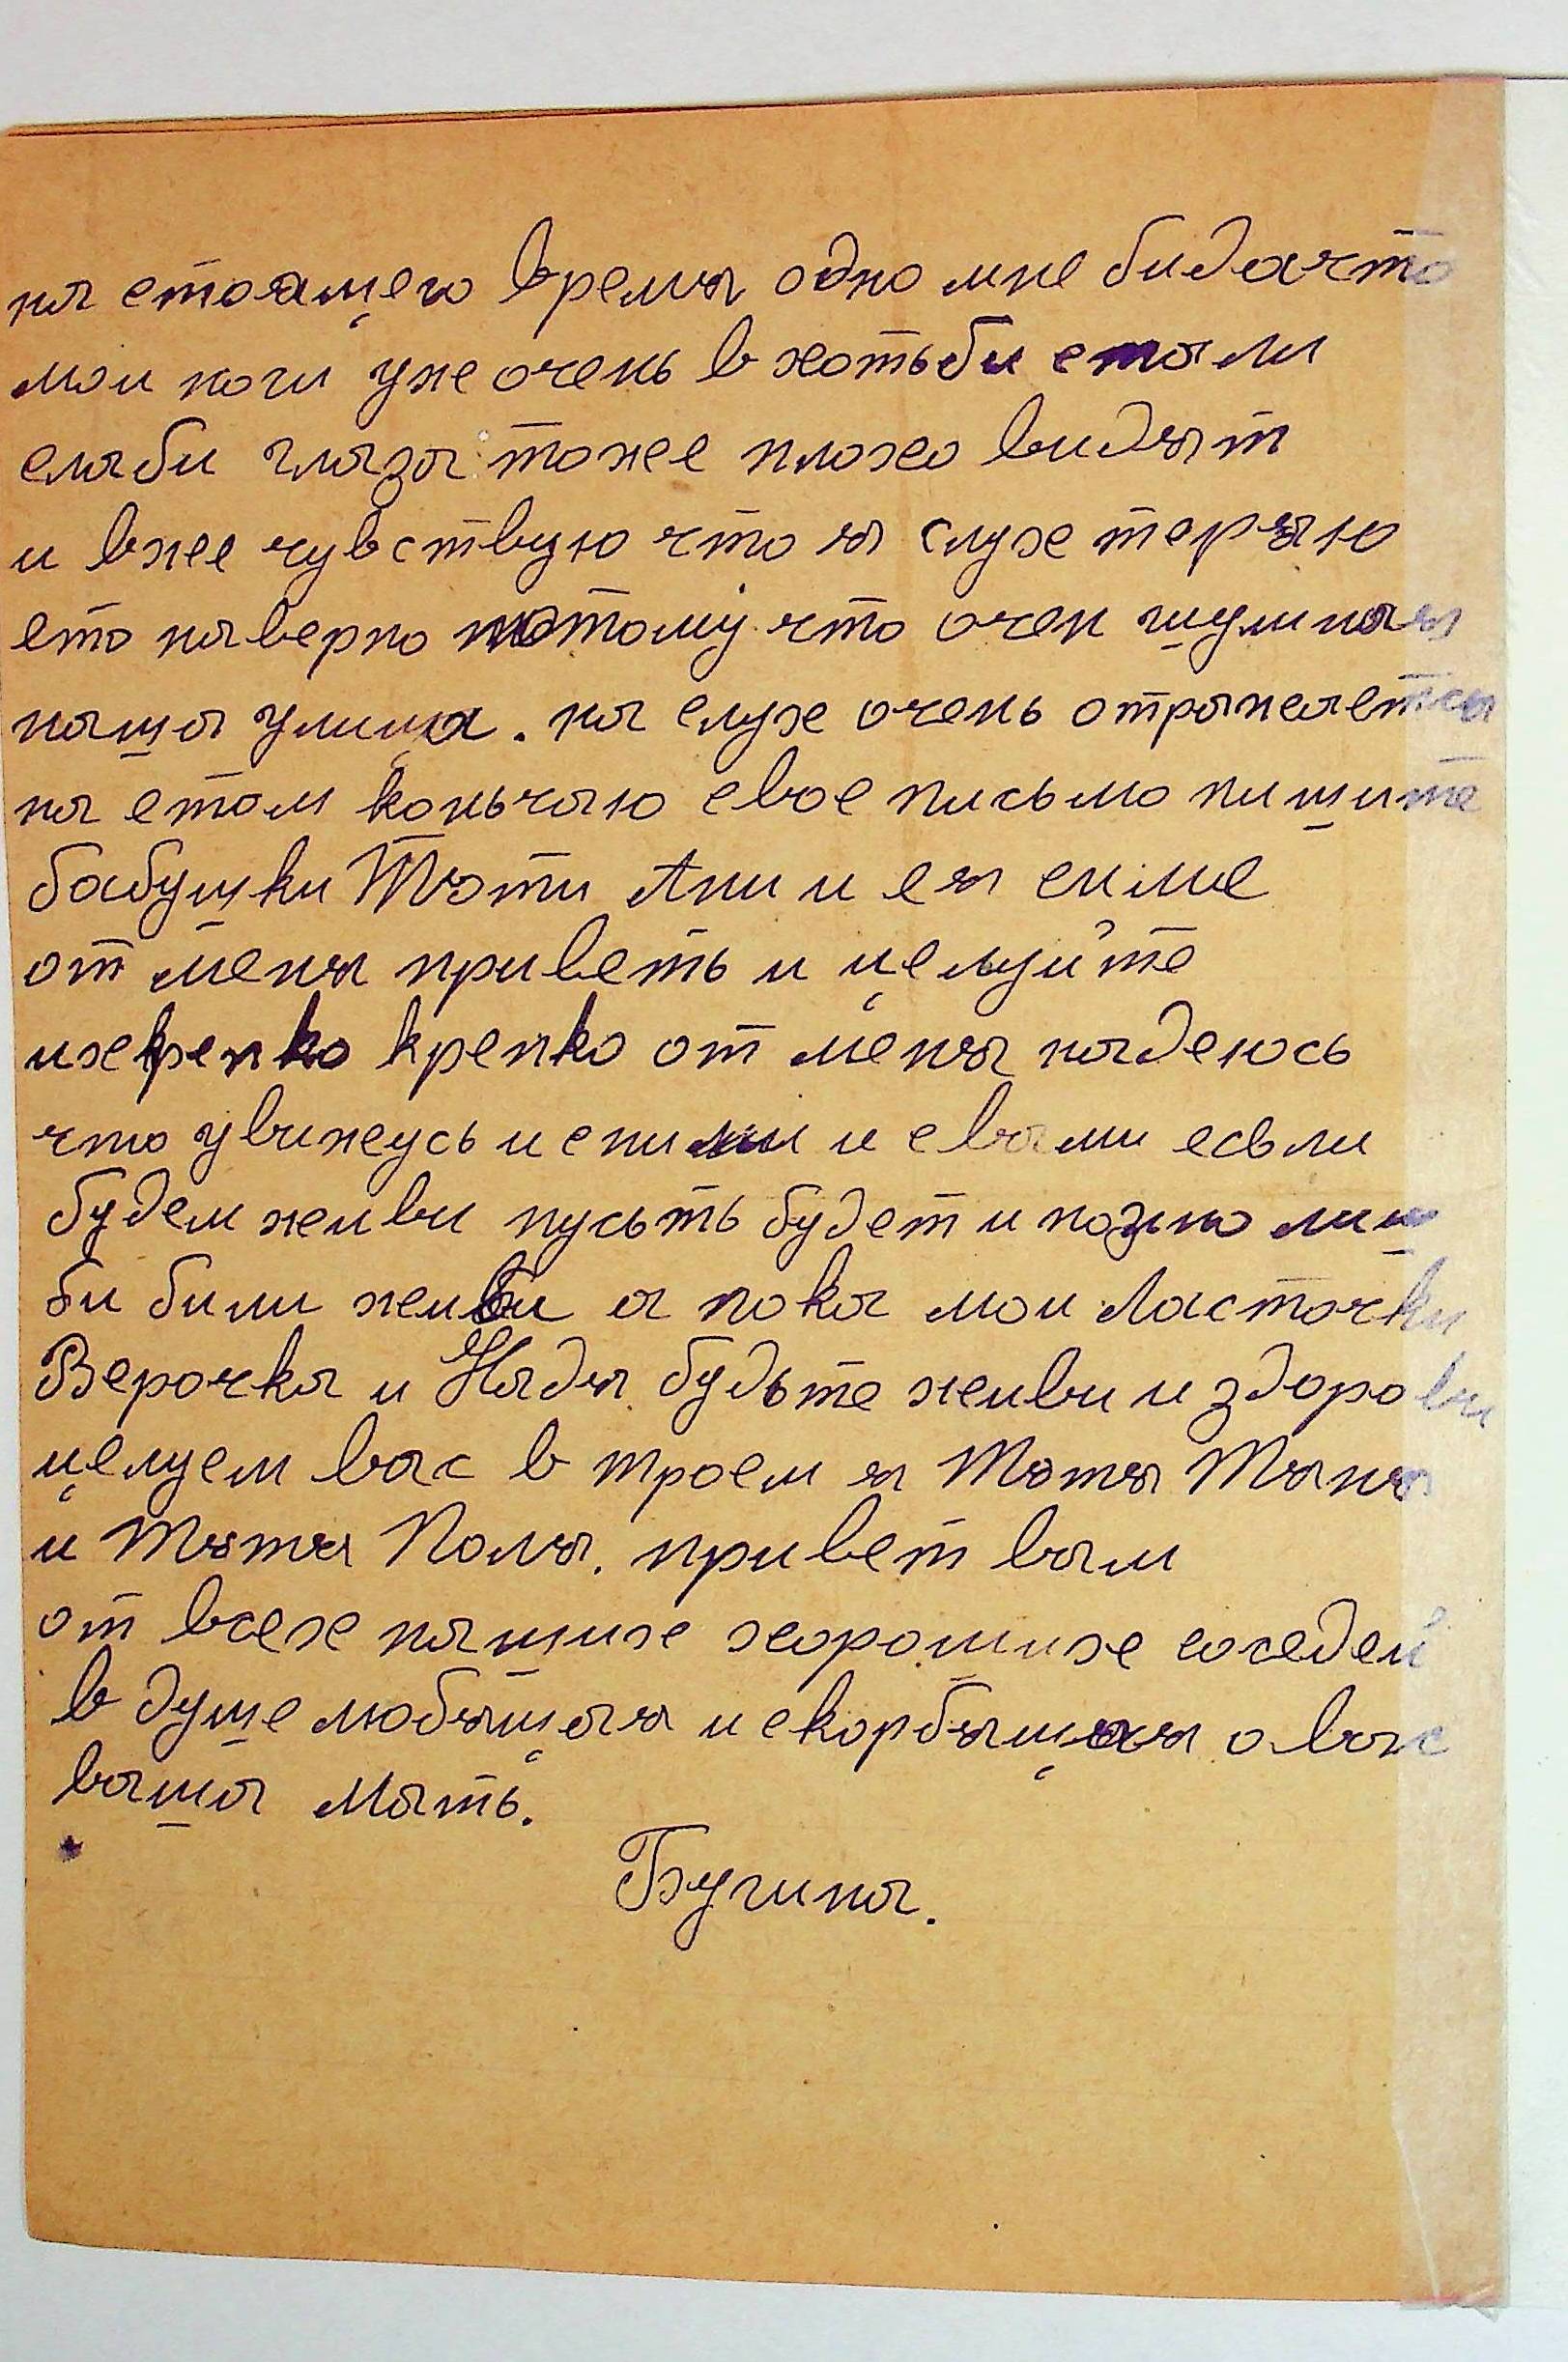 на стоящего время одно мне бида что
мои ноги уже очень в хотьби стали
слаби глаза тоже плохо видят
и вже чувствую что я слух теряю
ето наверно потому что очен шумная
наша улица. на слух очень отражается
на етом коньчаю свое письмо пишите
бабушки Тёти Ани и ея симе
от меня приветь и целуйте
их крепко крепко от меня надеюсь
что увижусь и с ними и с вами есьли
будем живи пусьть будет и позно лиш
би били живи а пока мои Ласточки
Верочка и Надя будьте живи и здорови
целуем вас в троем я Тётя Таня
и Тётя Поля. привет вам
от всех наших хороших соседей
в душе любящая и скорбящая о вас
ваша Мать.
Бугина.